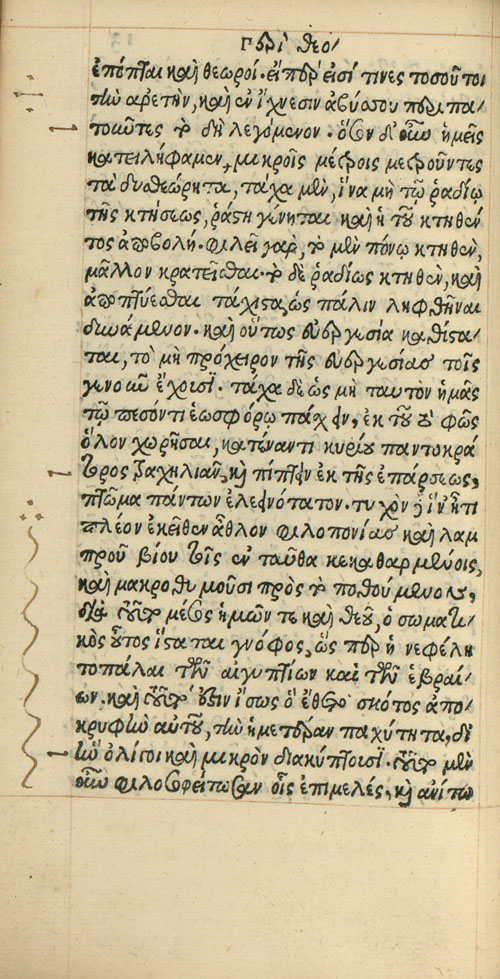 Περὶ θεο/
ἐπόπται καὶ θεωροί. εἴπερ εἰσί τινες τοσοῦτοι
τὴν ἀρετὴν, καὶ ἐν ἴχνεσιν ἀβύσσου περιπα
τοῦντες τὸ δὴ λεγόμενον. ὅθεν δ' οὖν ἡμεῖς
κατειλήφαμεν, μικροῖς μέτροις μετροῦντες
τὰ δυσθεώρητα, τάχα μὲν, ἵνα μὴ τῷ ῥαδίῳ
τῆς κτήσεως, ῥάστη γένηται καὶ ἡ τοῦ κτηθέν
τος ἀποβολή. φιλεῖ γὰρ, τὸ μὲν πόνῳ κτηθὲν,
μᾶλλον κρατεῖσθαι. τὸ δὲ ῥαδίως κτηθὲν, καὶ
ἀποπτύεσθαι τάχιστα, ὡς πάλιν ληφθῆναι
δυνάμενον. καὶ οὕτως εὐεργεσία καθίστα
ται, τὸ μὴ πρόχειρον τῆς εὐεργεσίας τοῖς
γε νοῦν ἔχουσι. τάχα δὲ ὡς μὴ ταυτὸν ἡμᾶς
τῷ πεσόντι ἑωσφόρῳ πάσχειν, ἐκ τοῦ τὸ φῶς
ὅλον χωρῆσαι, κατέναντι κυρίου παντοκρά
τορος τραχηλιᾶν, καὶ πίπτειν ἐκ τῆς ἐπάρσεως,
πτῶμα πάντων ἐλεεινότατον. τυχὸν δ' ἵν' ᾖ τι
πλέον ἐκεῖθεν ἆθλον φιλοπονίας καὶ λαμ
προῦ βίου τοῖς ἐνταῦθα κεκαθαρμένοις,
καὶ μακροθυμοῦσι πρὸς τὸ ποθούμενον,
διὰ τοῦτο μέσος ἡμῶν τε καὶ θεοῦ, ὁ σωματι/
κὸς οὗτος ἵσταται γνόφος, ὥσπερ ἡ νεφέλη
τοπάλαι τῶν αἰγυπτίων καὶ τῶν ἑβραί/
ων. καὶ τοῦτό ἐστιν ἴσως ὃ ἔθετο σκότος ἀπο/
κρυφὴν αὐτοῦ, τὴν ἡμετέραν παχύτητα, δι
ἣν ὀλίγοι καὶ μικρὸν διακύπτουσι. τοῦτο μὲν
οὖν φιλοσοφείτωσαν οἷς ἐπιμελές, καὶ ἀνίτω